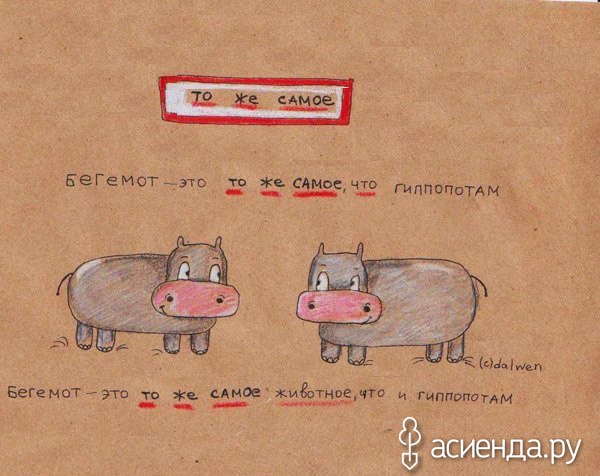 то же самое
Бегемот – это то же самое, что гиппопотам
(c)dalwen
Бегемот – это то же самое животное, что и гиппопотам
асиенда.ру